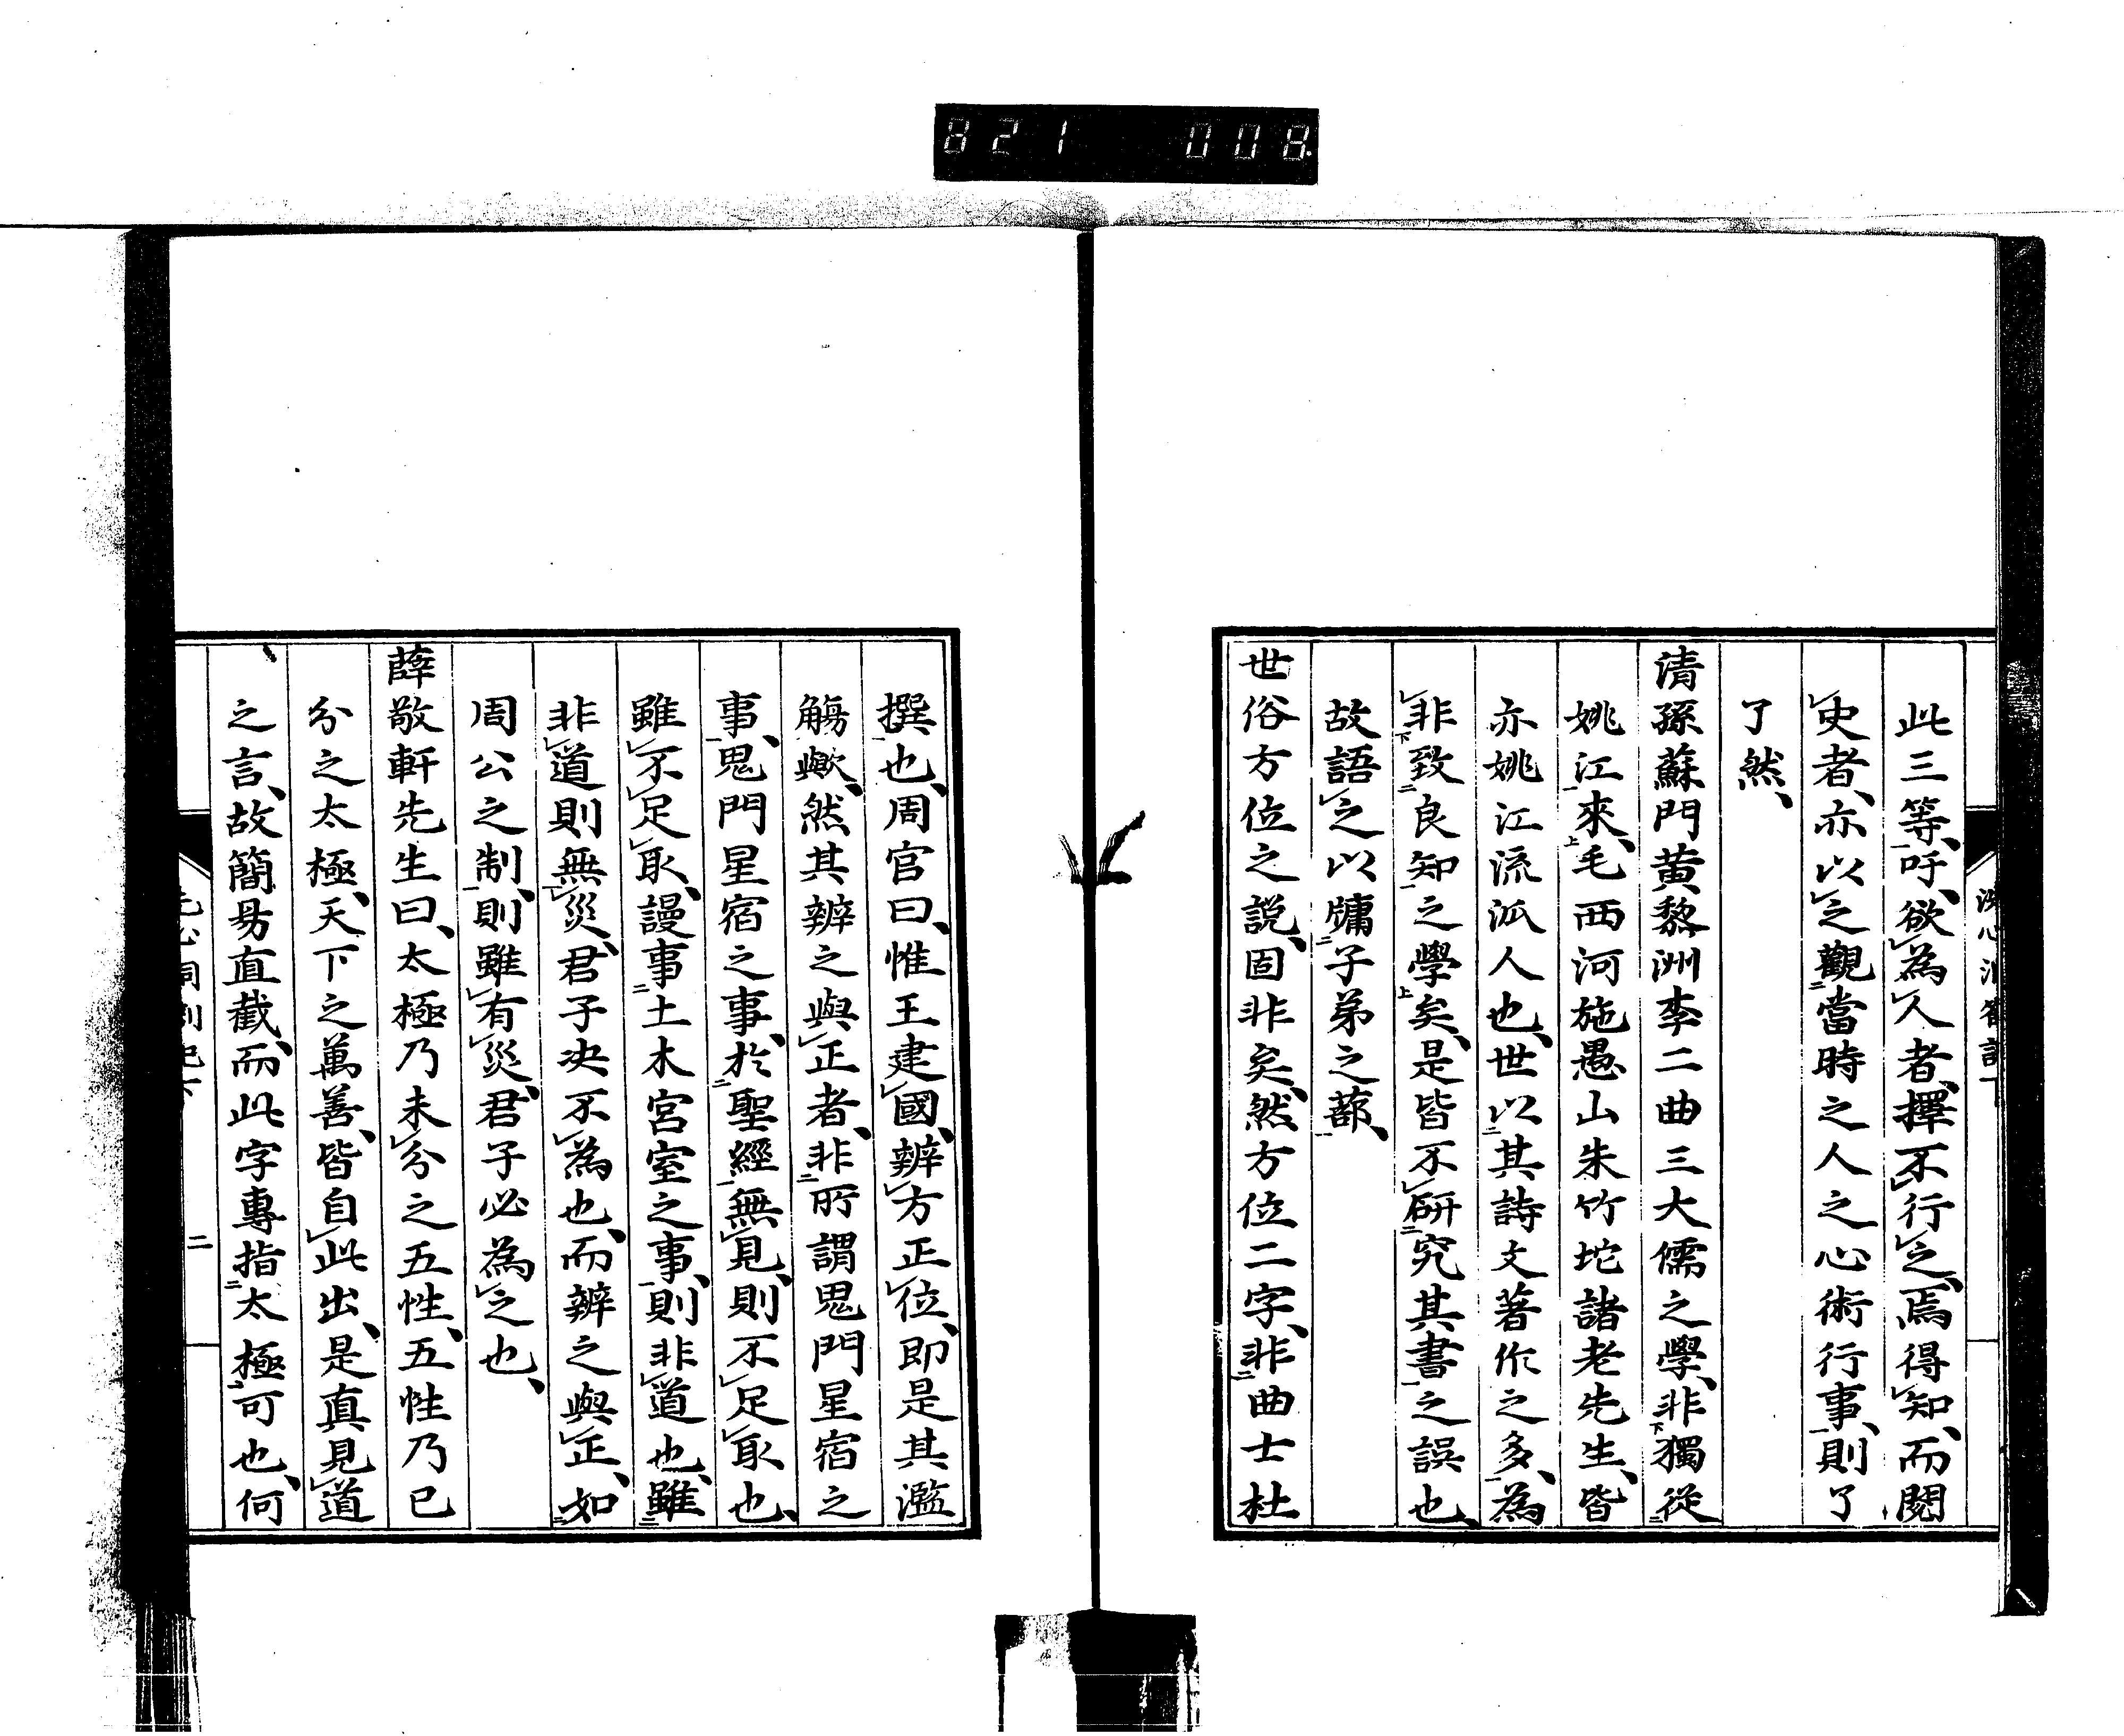 821 008
洗心洞劄記下
此三等、吁、欲為人者、擇不行之、焉得知、而閱
史者、亦以之觀當時之人之心術行事、則了
了然、
清孫蘇門黃黎洲李二曲三大儒之學、非獨從
姚江來、毛西河施愚山朱竹坨諸老先生、皆
亦姚江流派人也、世以其詩文著作之多、為
非致良知之學矣、是皆不研究其書之誤也、
故語之以牗子弟之蔀、
世俗方位之說、固非矣、然方位二字、非曲士杜
撰也、周官曰、惟王建國、辨方正位、即是其濫
觴歟、然其辨之與正者、非所謂鬼門星宿之
事、鬼門星宿之事、於聖經無見、則不足取也、
雖不足取、謾事土木宮室之事、則非道也、雖
非道則無災、君子決不為也、而辨之與正、如
周公之制、則雖有災、君子必為之也、
薛敬軒先生曰、太極乃未分之五性、五性乃已
分之太極、天下之萬善、皆自此出、是真見道
之言、故簡易直截、而此字專指太極可也、何
洗心洞劄記下
二